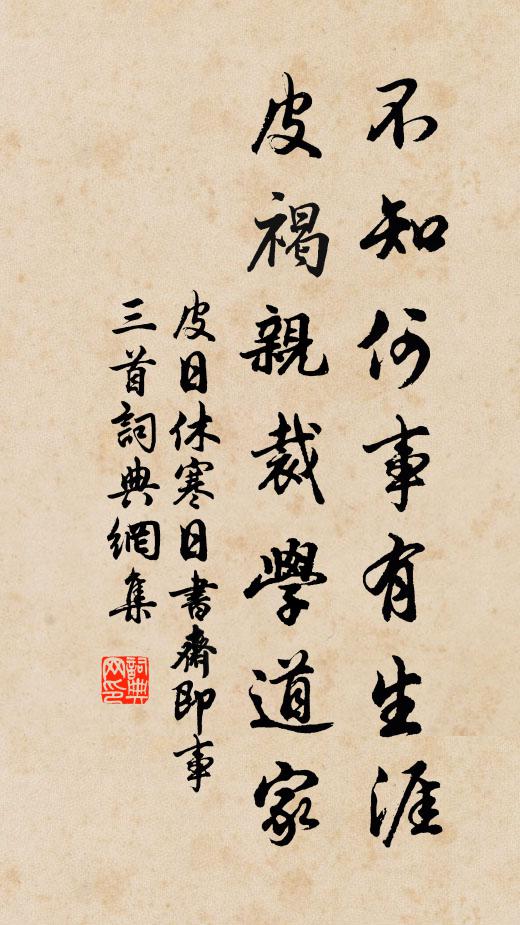 不知何事有生涯
皮褐親裁學道家
皮日休寒日書齋即事
三首詞典網集
詞典網印